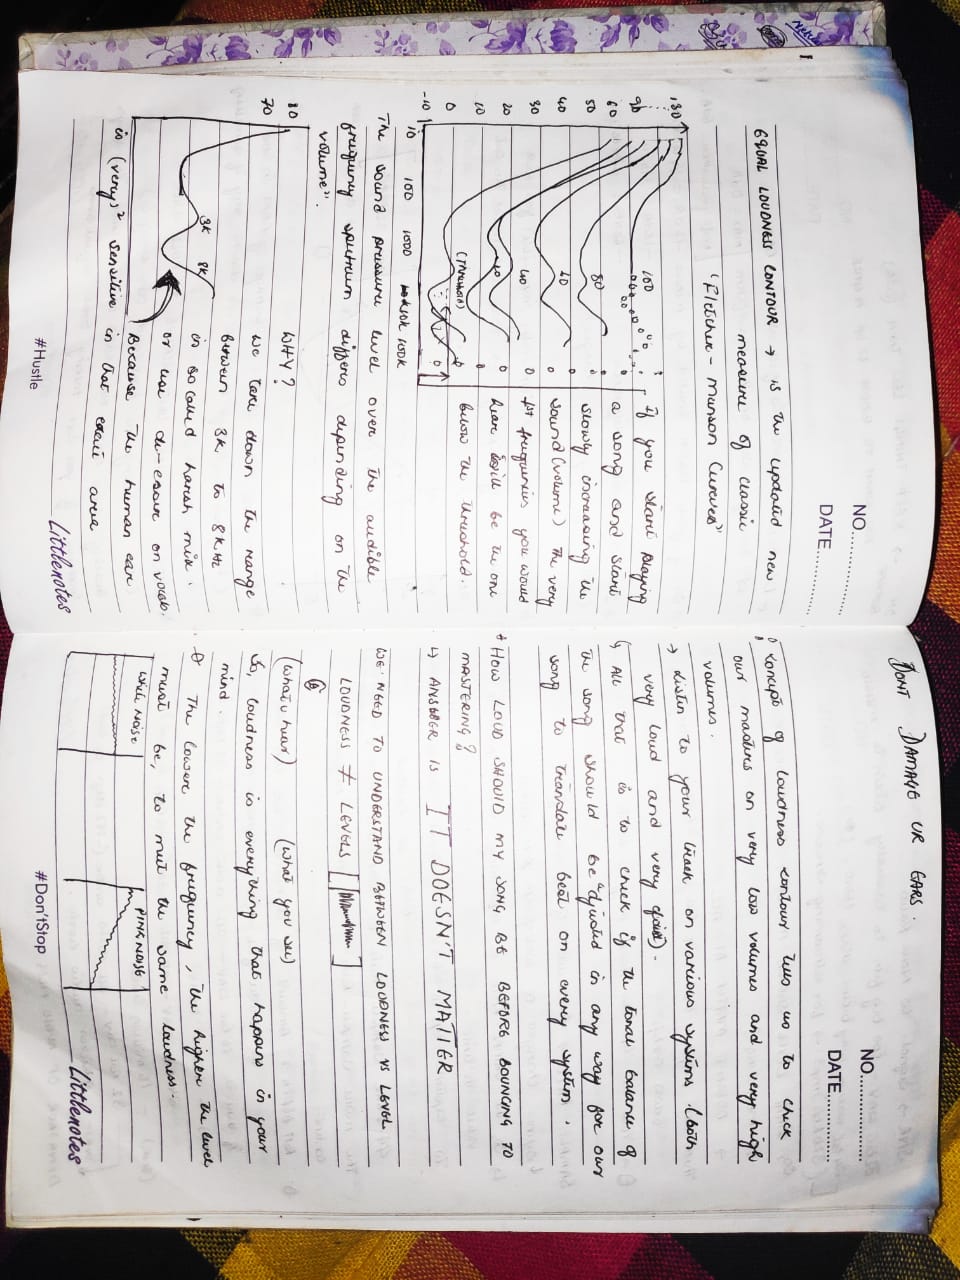 NO..............
DATE..............
EQUAL LOUDNESS CONTOUR → is the updated new
measure of classic
"Fletcher - Munson Curves"
130
90
60
50
40
30
20
10
0
-10
100
80
60
40
(Threshold)
10 100 1000 10k 100k
If you start playing
a song and start
slowly increasing the
sound (volume) the very
1st frequencies you would
hear will be the one
below the threshold.
The sound pressure level over the audible
frequency spectrum differs depending on the
volume".
80
70
3K 8K
WHY?
we take down the range
between 3K to 8KHz
in so called harsh mix.
or use de-esser on vocals.
Because the human ear
is (very)² sensitive in that exact area
#Hustle
Littlenotes
NO..............
DATE..............
DONT DAMAGE UR EARS.
Concept of loudness contour tells us to check
our masters on very low volumes and very high
volumes.
→ Listen to your track on various systems. (both
very loud and very faint).
↳ All that is to check if the tonal balance of
the song should be adjusted in any way for our
song to translate best on every system.
* HOW LOUD SHOULD MY SONG BE BEFORE BOUNCING TO
MASTERING?
↳ ANSWER IS IT DOESN'T MATTER
WE NEED TO UNDERSTAND BETWEEN LOUDNESS VS LEVEL
LOUDNESS ≠ LEVELS
(what u hear) (what you see)
So, loudness is everything that happens in your
mind.
* The lower the frequency, the higher the level
must be, to meet the same loudness.
WHITE NOISE
PINK NOISE
#Don'tStop
Littlenotes